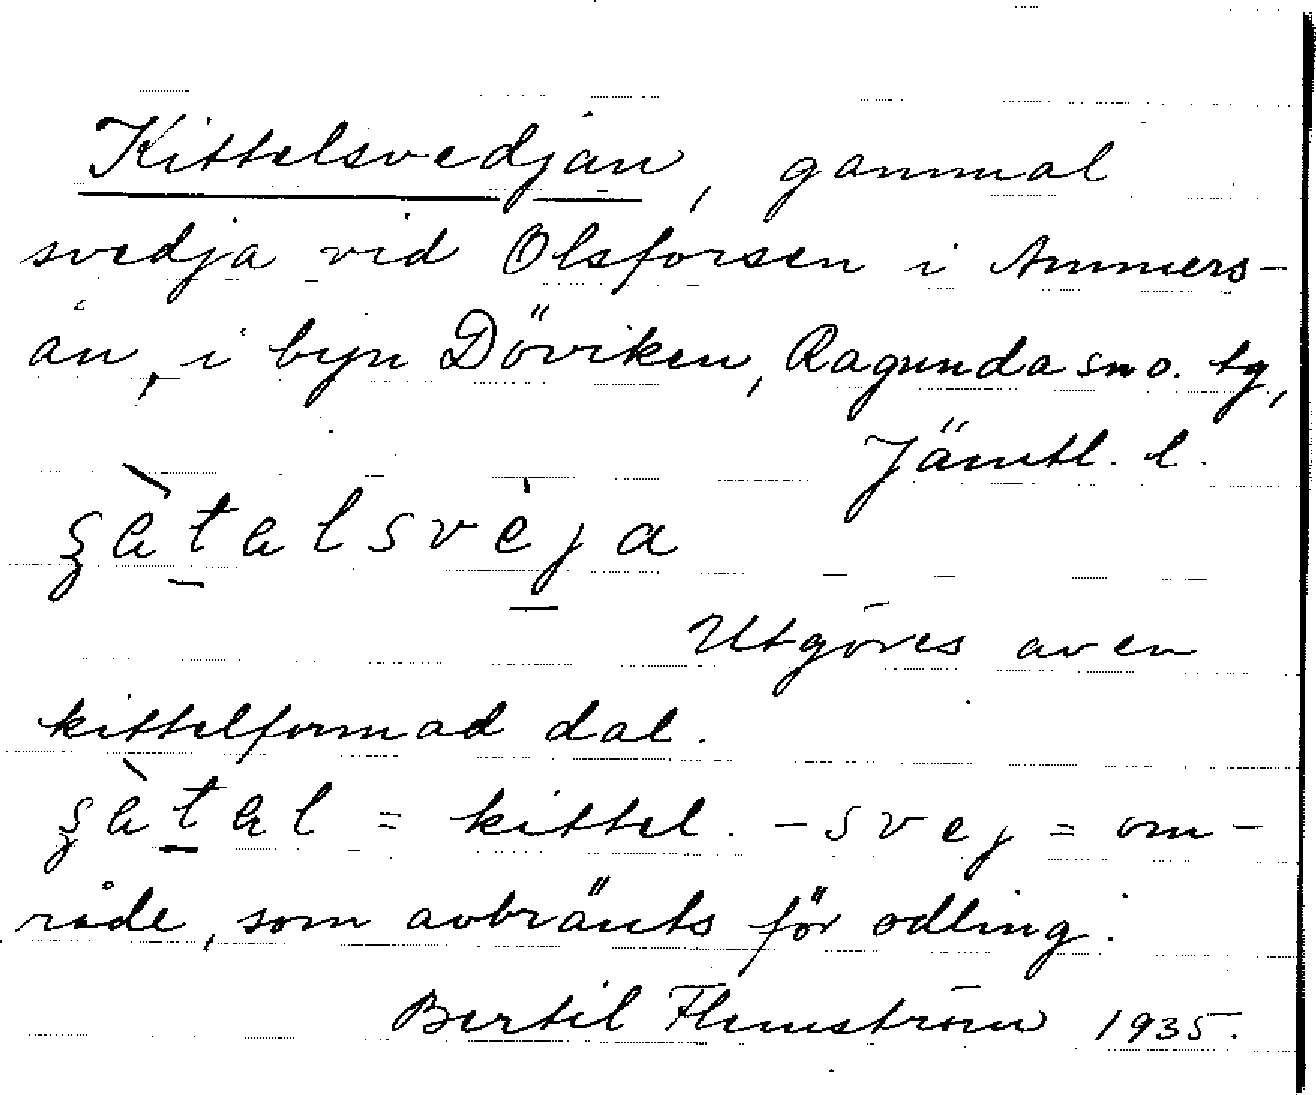 Kittelsvedjan, gammal
svedja vid Olsforsen i Ammers-
ån, i byn Döviken, Ragunda sn o. tg,
Jämtl. l.
şètalsvèja
Utgöres av en
kittelformad dal.
şètal = kittel. -svej = om-
råde, som avbränts för odling.
Bertil Flemström 1935.